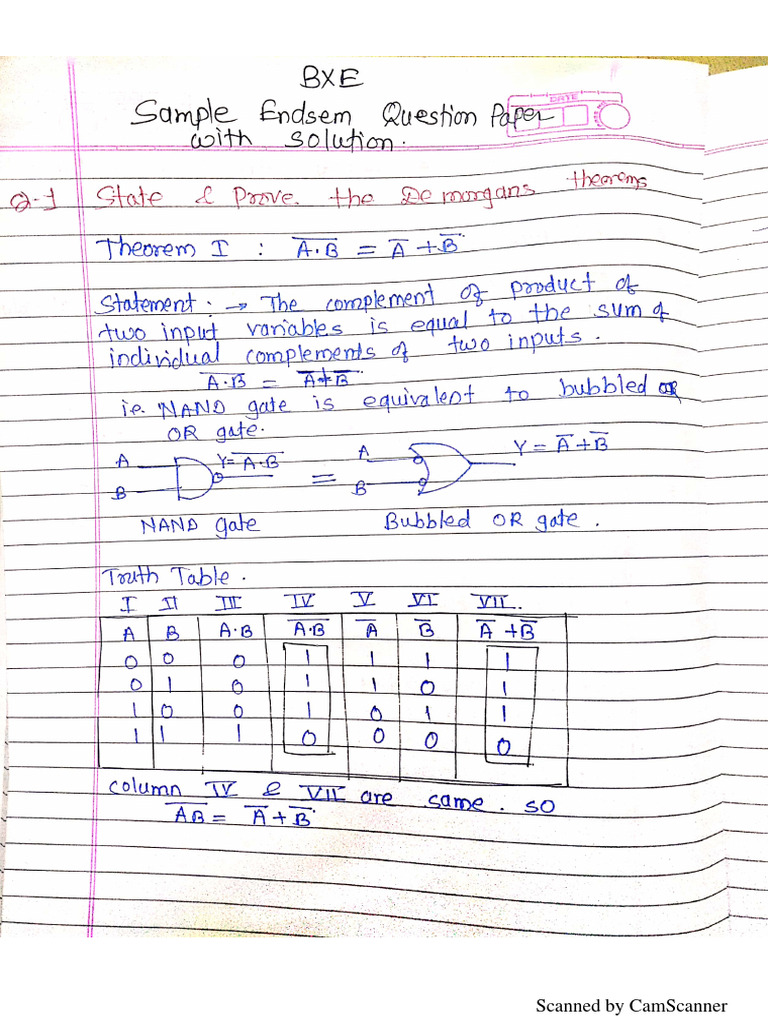 BXE
DATE
Sample Endsem Question Paper
with solution.
Q-1 State & Prove. the De morgans theorems
Theorem I : A̅.̅B̅ = A̅ + B̅
Statement: → The complement of product of
two input variables is equal to the sum of
individual complements of two inputs.
A̅.̅B̅ = A̅+B̅
i.e. NAND gate is equivalent to bubbled OR
OR gate.
A Y=A̅.̅B̅ = A Y = A̅+B̅
B B
NAND gate Bubbled OR gate.
Truth Table.
I II III IV V VI VII.
A B A.B A̅.̅B̅ A̅ B̅ A̅ + B̅
0 0 0 1 1 1 1
0 1 0 1 1 0 1
1 0 0 1 0 1 1
1 1 1 0 0 0 0
column IV & VII are same. so
A̅B̅ = A̅ + B̅
Scanned by CamScanner